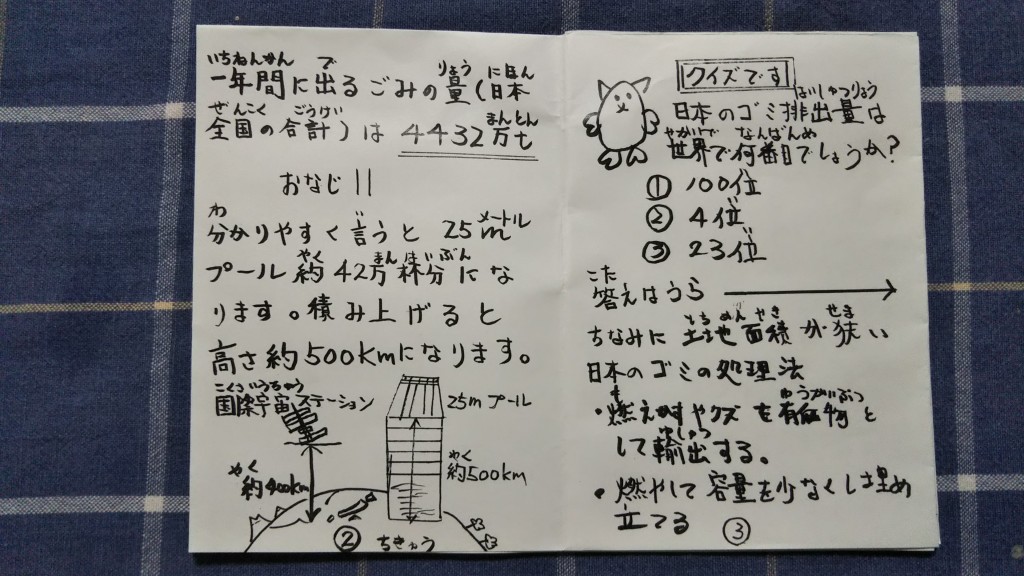 いちねんかん で りょう にほん
一年間に出るごみの量(日本
ぜんこく ごうけい まんとん
全国の合計)は 4432万t
おなじ ||
わ い メートル
分かりやすく言うと 25m
やく まん はいぶん
プール 約 42万 杯分 にな
ります。積み上げると
高さ約500kmになります。
こくさいうちゅう
国際宇宙ステーション
25m プール
やく
約500km
やく
約400km
ちきゅう
②
クイズです
はいしゅつりょう
日本のゴミ排出量は
せかいで なんばんめ
世界で何番目でしょうか?
① 100位
② 4位
③ 23位
こた
答えはうら
とち めんせき せま
ちなみに 土地面積が狭い
日本のゴミの処理法
も ゆうがいぶつ
・燃えかすやクズを有価物と
ゆしゅつ
して輸出する。
・燃やして容量を少なくし埋め
立てる
③